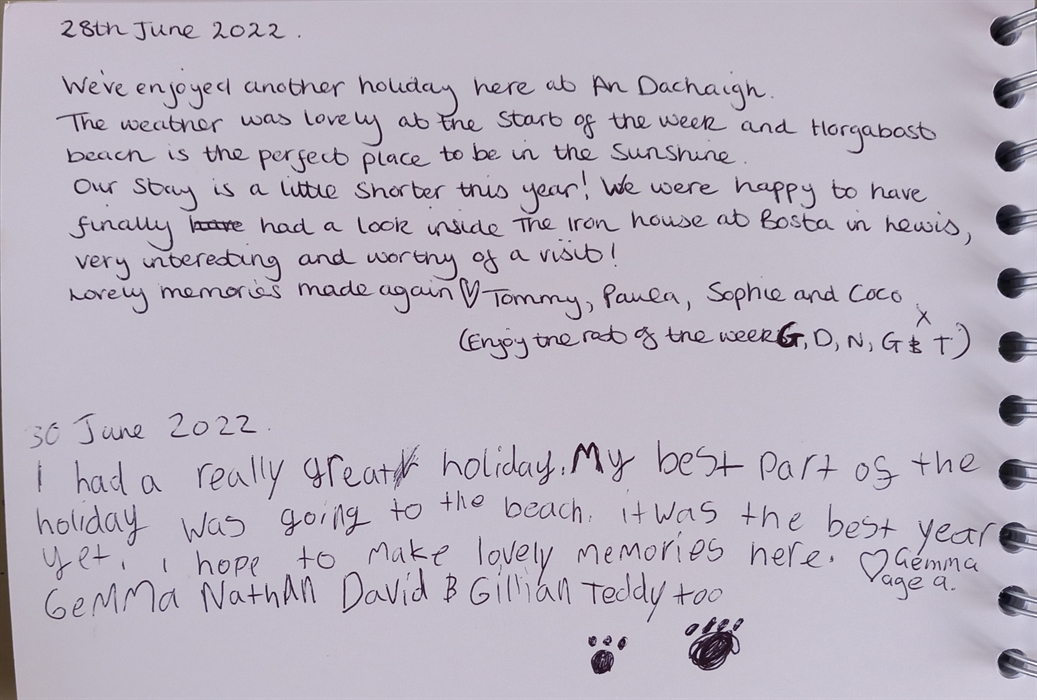 28th June 2022.
We've enjoyed another holiday here at An Dachaigh.
The weather was lovely at the start of the week and Horgabost
beach is the perfect place to be in the sunshine.
Our stay is a little shorter this year! We were happy to have
finally have had a look inside The Iron house at Bosta in Lewis,
very interesting and worthy of a visit!
Lovely memories made again ♡ Tommy, Paula, Sophie and Coco
x
(Enjoy the rest of the week G, D, N, G & T)
30 June 2022.
I had a really great holiday. My best part of the
holiday was going to the beach. it was the best year
yet. i hope to make lovely memories here. ♡ Gemma
age 9.
Gemma Nathan David & Gillian Teddy too